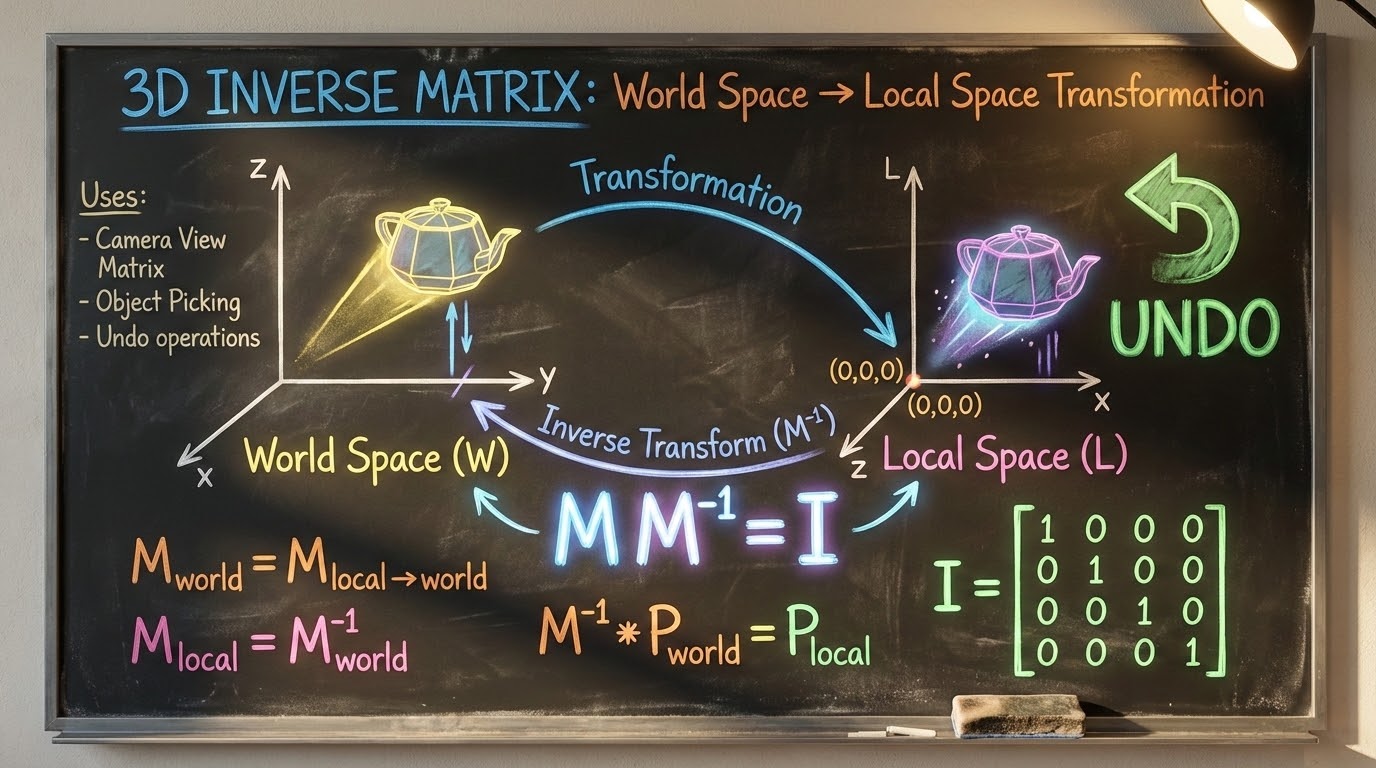 3D INVERSE MATRIX: World Space → Local Space Transformation
Uses:
- Camera View
Matrix
- Object Picking
- Undo operations
Z
Y
X
World Space (W)
Transformation
Inverse Transform (M⁻¹)
L
X
Z
(0,0,0)
(0,0,0)
Local Space (L)
UNDO
M M⁻¹ = I
M_world = M_local→world
M_local = M⁻¹_world
M⁻¹ * P_world = P_local
I =
1 0 0 0
0 1 0 0
0 0 1 0
0 0 0 1